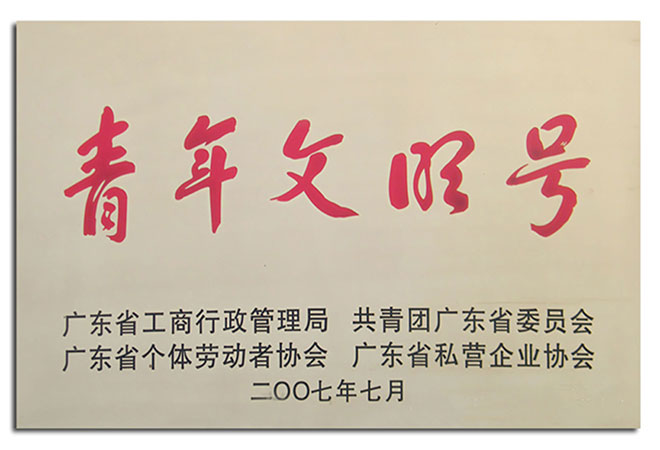 青年文明号
广东省工商行政管理局 共青团广东省委员会
广东省个体劳动者协会 广东省私营企业协会
二〇〇七年七月